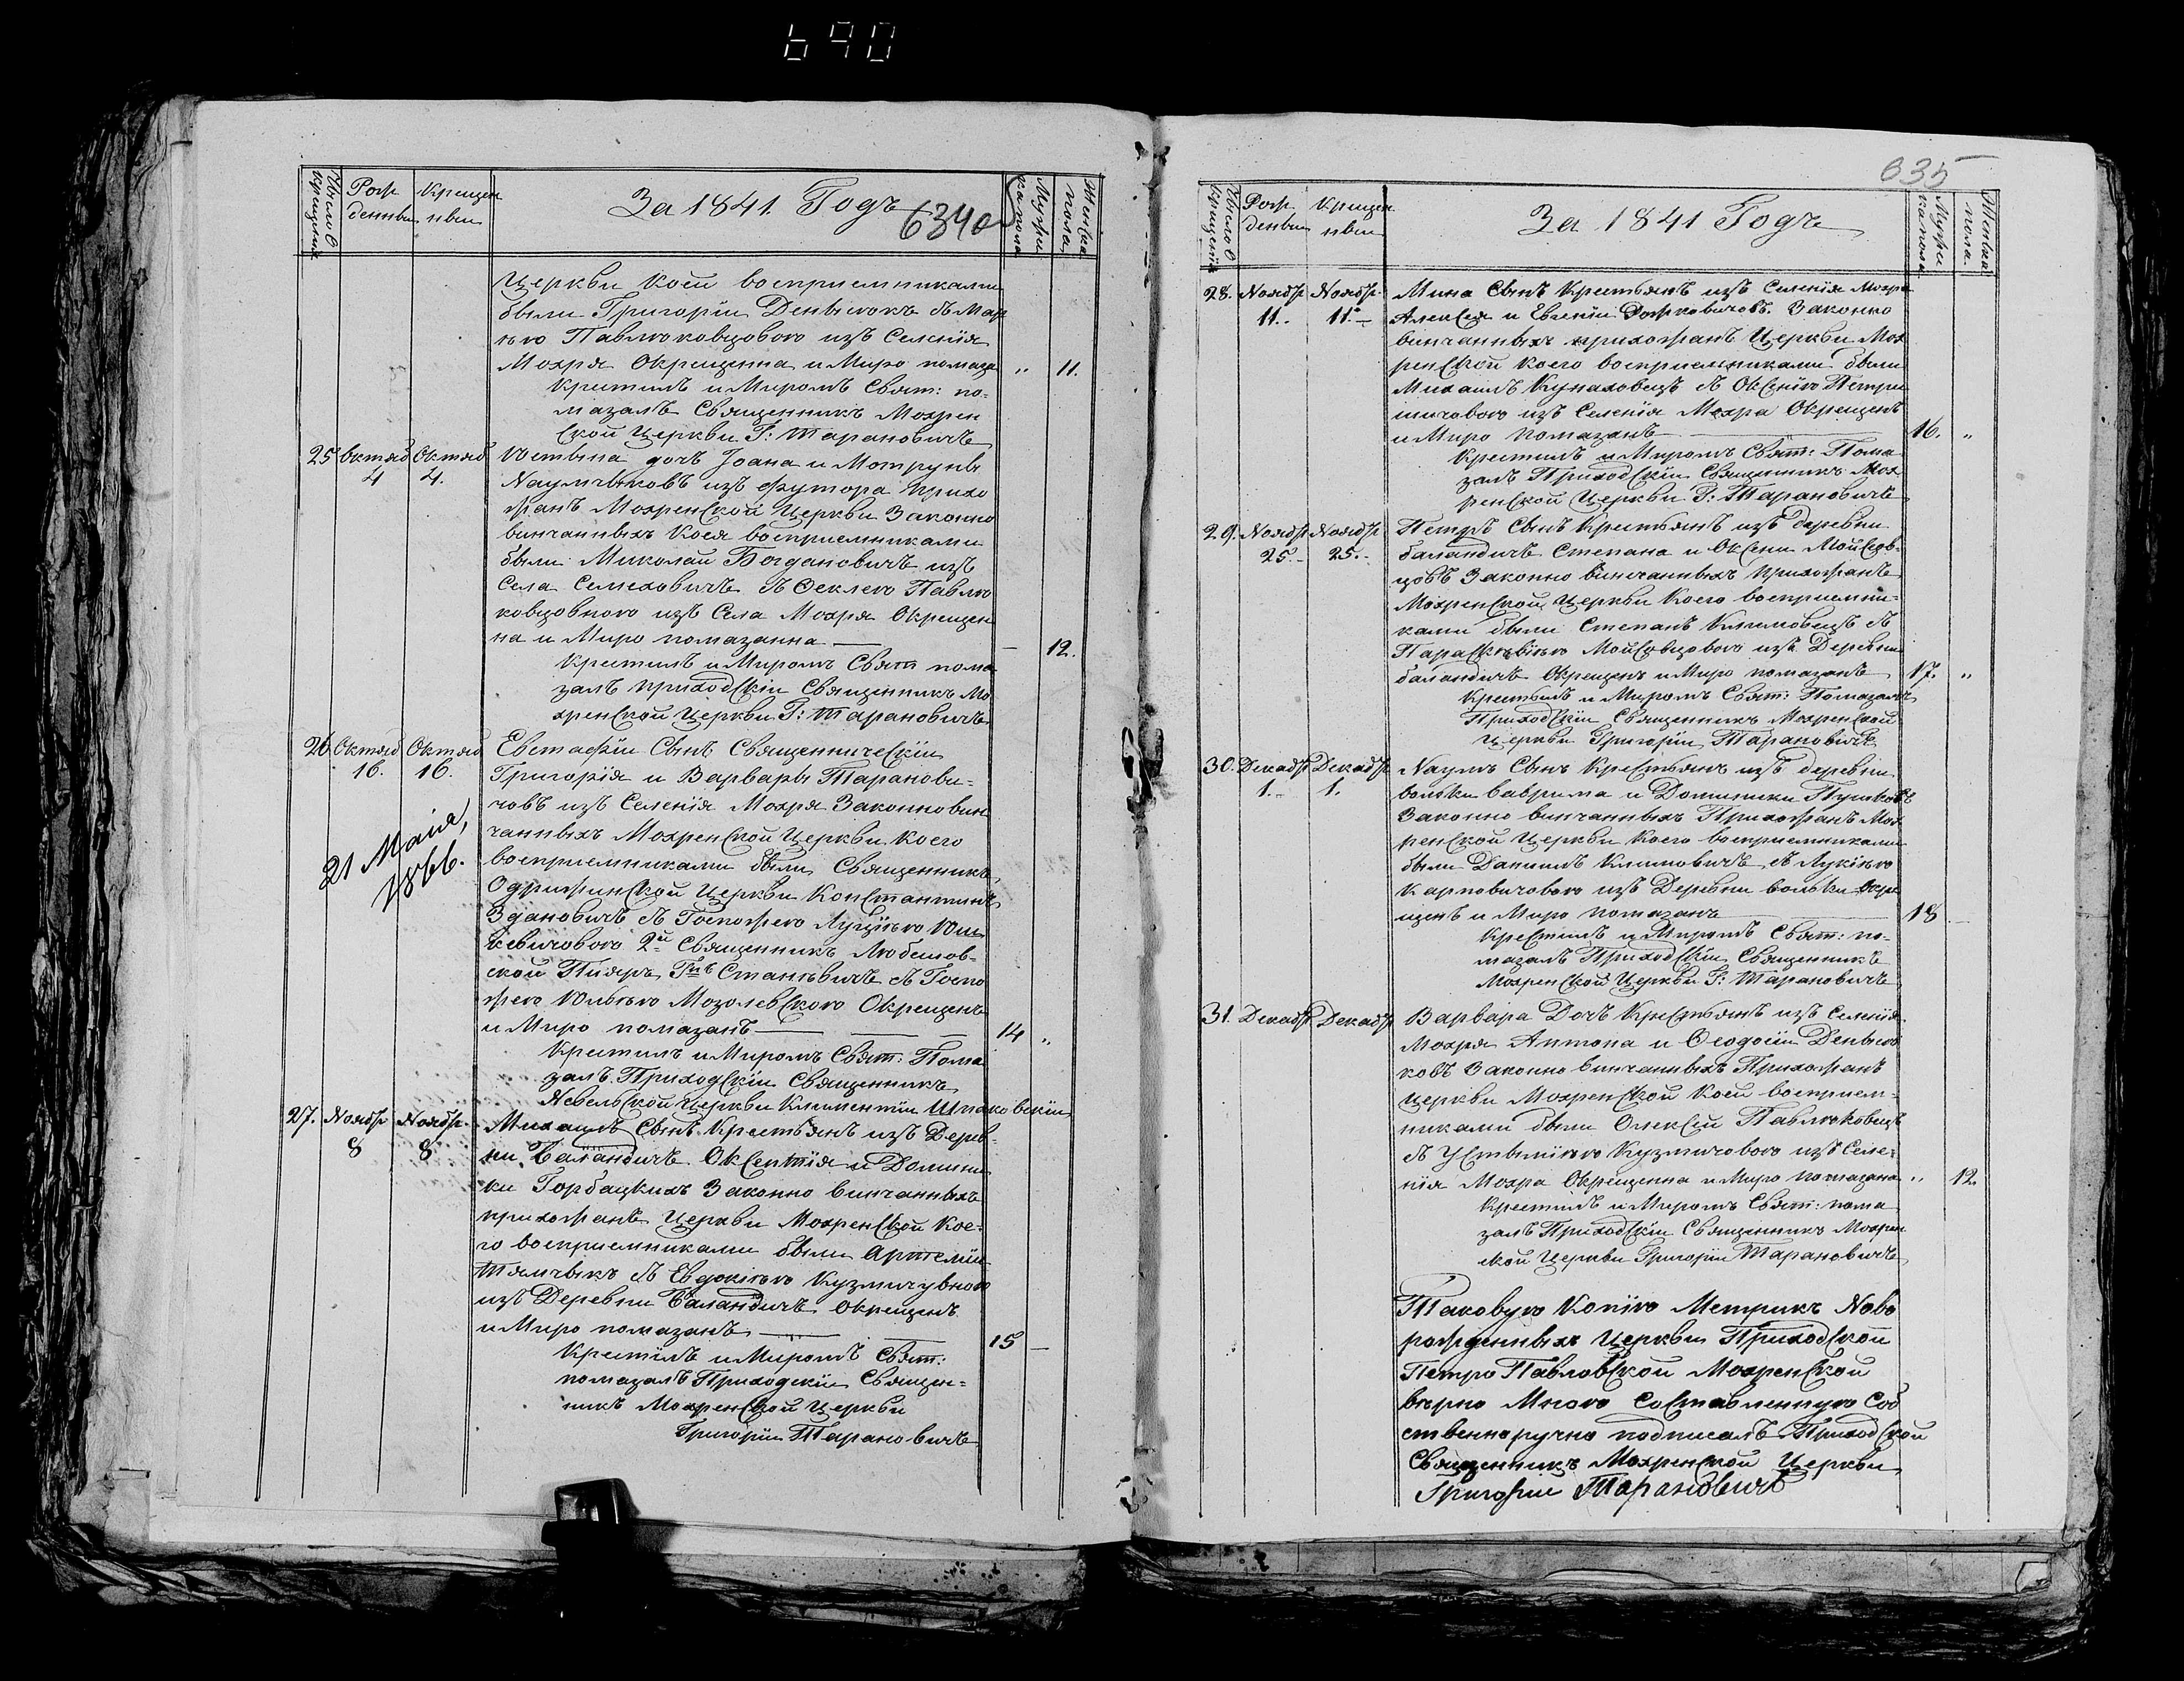 690
Число Крещения
Рож деньи
Крещен ньи
За 1841. Годъ
634об
Мужи каполa
Женска пола.
Церкви коей восприемниками
были Григорій Денысюкъ съ Мар
ѣю Павлюковцовою изъ Селенія
Мохря Окрещенна и Миро помаза „ 11.
Крестилъ и Миромъ Свят: по-
мазалъ Священникъ Мохрен
ской Церкви Г: Тарановичъ
25 Октяб 4 Октяб 4. Юстына дочъ Іоана и Мотруны
Наумчыковъ изъ футора прихо
жанъ Мохренской Церкви Законно
винчанныхъ Коея восприемниками
были Миколай Богдановичъ изъ
Села Семеховичъ съ Феклею Павлю
ковцовною изъ Села Мохря Окрещен
на и Миро помазанна — — 12.
Крестилъ и Миромъ Свят пома
залъ приходскіи Священникъ Мо
хренской Церкви Г: Тарановичъ
26 Октяб 16. Октяб 16. Евстафіи Сынъ Священническіи
Григорія и Варвары Таранови-
човъ изъ Селенія Мохря Законно вин
чанныхъ Мохренской Церкви коего
21 Маія, 1866.
восприемниками были Священникъ
Одрижинской Церкви Константинъ
Здановичъ съ Госпожею Луціѣю Юш
кевичовою 2й Священникъ Любешов-
ской Піяръ, Гнъ Станѣвичъ съ Госпо
жею Юліѣю Мозолевскою Окрещенъ
и Миро помазанъ — — 14 „
Крестилъ и Миромъ Свят: Пома
залъ Приходскіи Священникъ
Невельской Церкви Климентіи Шпаковскіи
27. Ноябр 8 Ноябр. 8 Михаилъ Сынъ Крестьянъ изъ Дерев-
ни Баландичъ Оксентія и Домини
ки Горбацкихъ Законно винчанныхъ
прихожанъ Церкви Мохренской Кое-
го восприемниками были Артеміи
съ Евдокіѣю Кузмичувною
изъ Деревни Баландичъ окрещенъ
и Миро помазанъ — — 15 —
Крестилъ и Миромъ Свят:
помазалъ Приходскіи Священ=
никъ Мохренской Церкви
Григоріи Тарановичъ
635
Число Крещения
Рож деньи
Крещен ньи
За 1841 Годъ
Мужи каполa
Женска пола.
28. Ноябр 11.. Ноябр. 11.— Мина Сынъ Крестьянъ изъ Селенія Мохра
Алексея и Евгеніи Рожковичовъ. Законно
винчанныхъ прихожанъ Церкви Мох
ренской коего восприемниками были
Михаилъ Кунаховецъ съ Оксеніею Петри
шичовою изъ Селенія Мохра Окрещенъ
и Миро помазанъ — 16. „
Крестилъ и Миромъ Свят: Пома
залъ Приходскіи Священникъ Мох
ренской Церкви Г: Тарановичъ
29. Ноябр 25.- Ноябр 25.- Петръ Сынъ Крестьянъ изъ деревни
баландичъ Степана и Оксени Мойсев-
цовъ Законно винчанныхъ прихожанъ
Мохренской Церкви Коего восприемни-
ками были Степанъ Климовецъ съ
Параскевіѣю Мойсевцовою изъ Деревни
баландичъ Окрещенъ и Миро помазанъ 17. „
Крестылъ и Миромъ Свят: Помазалъ
Приходскіи Священникъ Мохренской
Церкви Григоріи Тарановічъ
30. Декабр 1.- Декабр 1. Наумъ Сынъ Крестьянъ изъ деревни
вольки Ваврима и Доминики
Законно винчанныхъ Прихожанъ Мох
ренской Церкви Коего восприемниками
были Данилъ Климовичъ съ Лукіѣю
Карповичовою изъ Деревни вольки Окре
щенъ и Миро помазанъ — 18 —
Крестилъ и Миромъ Свят: по-
мазалъ Приходскіи Священникъ
Мохренской Церкви Г: Тарановичъ
31. Декабр Декабр Варвара Дочъ Крестьянъ изъ Селенія
Мохря Антона и Феодосіи Денысю
ковъ Законно винчанныхъ Прихожанъ
Церкви Мохренской Коей восприем-
никами были Олексіи Павлюковецъ
съ Устыніѣю Кузмичовою изъ Селе-
нія Мохра Окрещенна и Миро помазана „ 12.
Крестилъ и Миромъ Свят: пома
залъ Приходскіи Священникъ Мохрен
ской Церкви Григоріи Тарановичъ
Таковую Копію Метрикъ Ново
рожденныхъ Церкви Приходской
Петро Павловской Мохренской
вѣрно Мною Составленную Соб
ственноручно подписалъ Приходской
Священникъ Мохренской Церкви
Григорій Тарановичъ